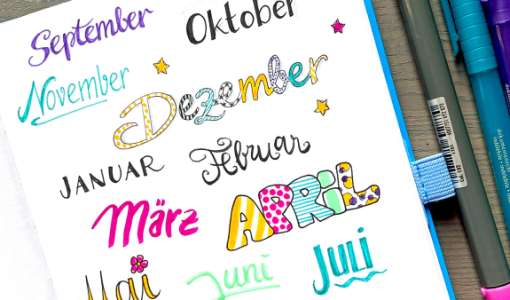 September Oktober
November
Dezember
JANUAR Februar
März APRIL
Mai Juni Juli